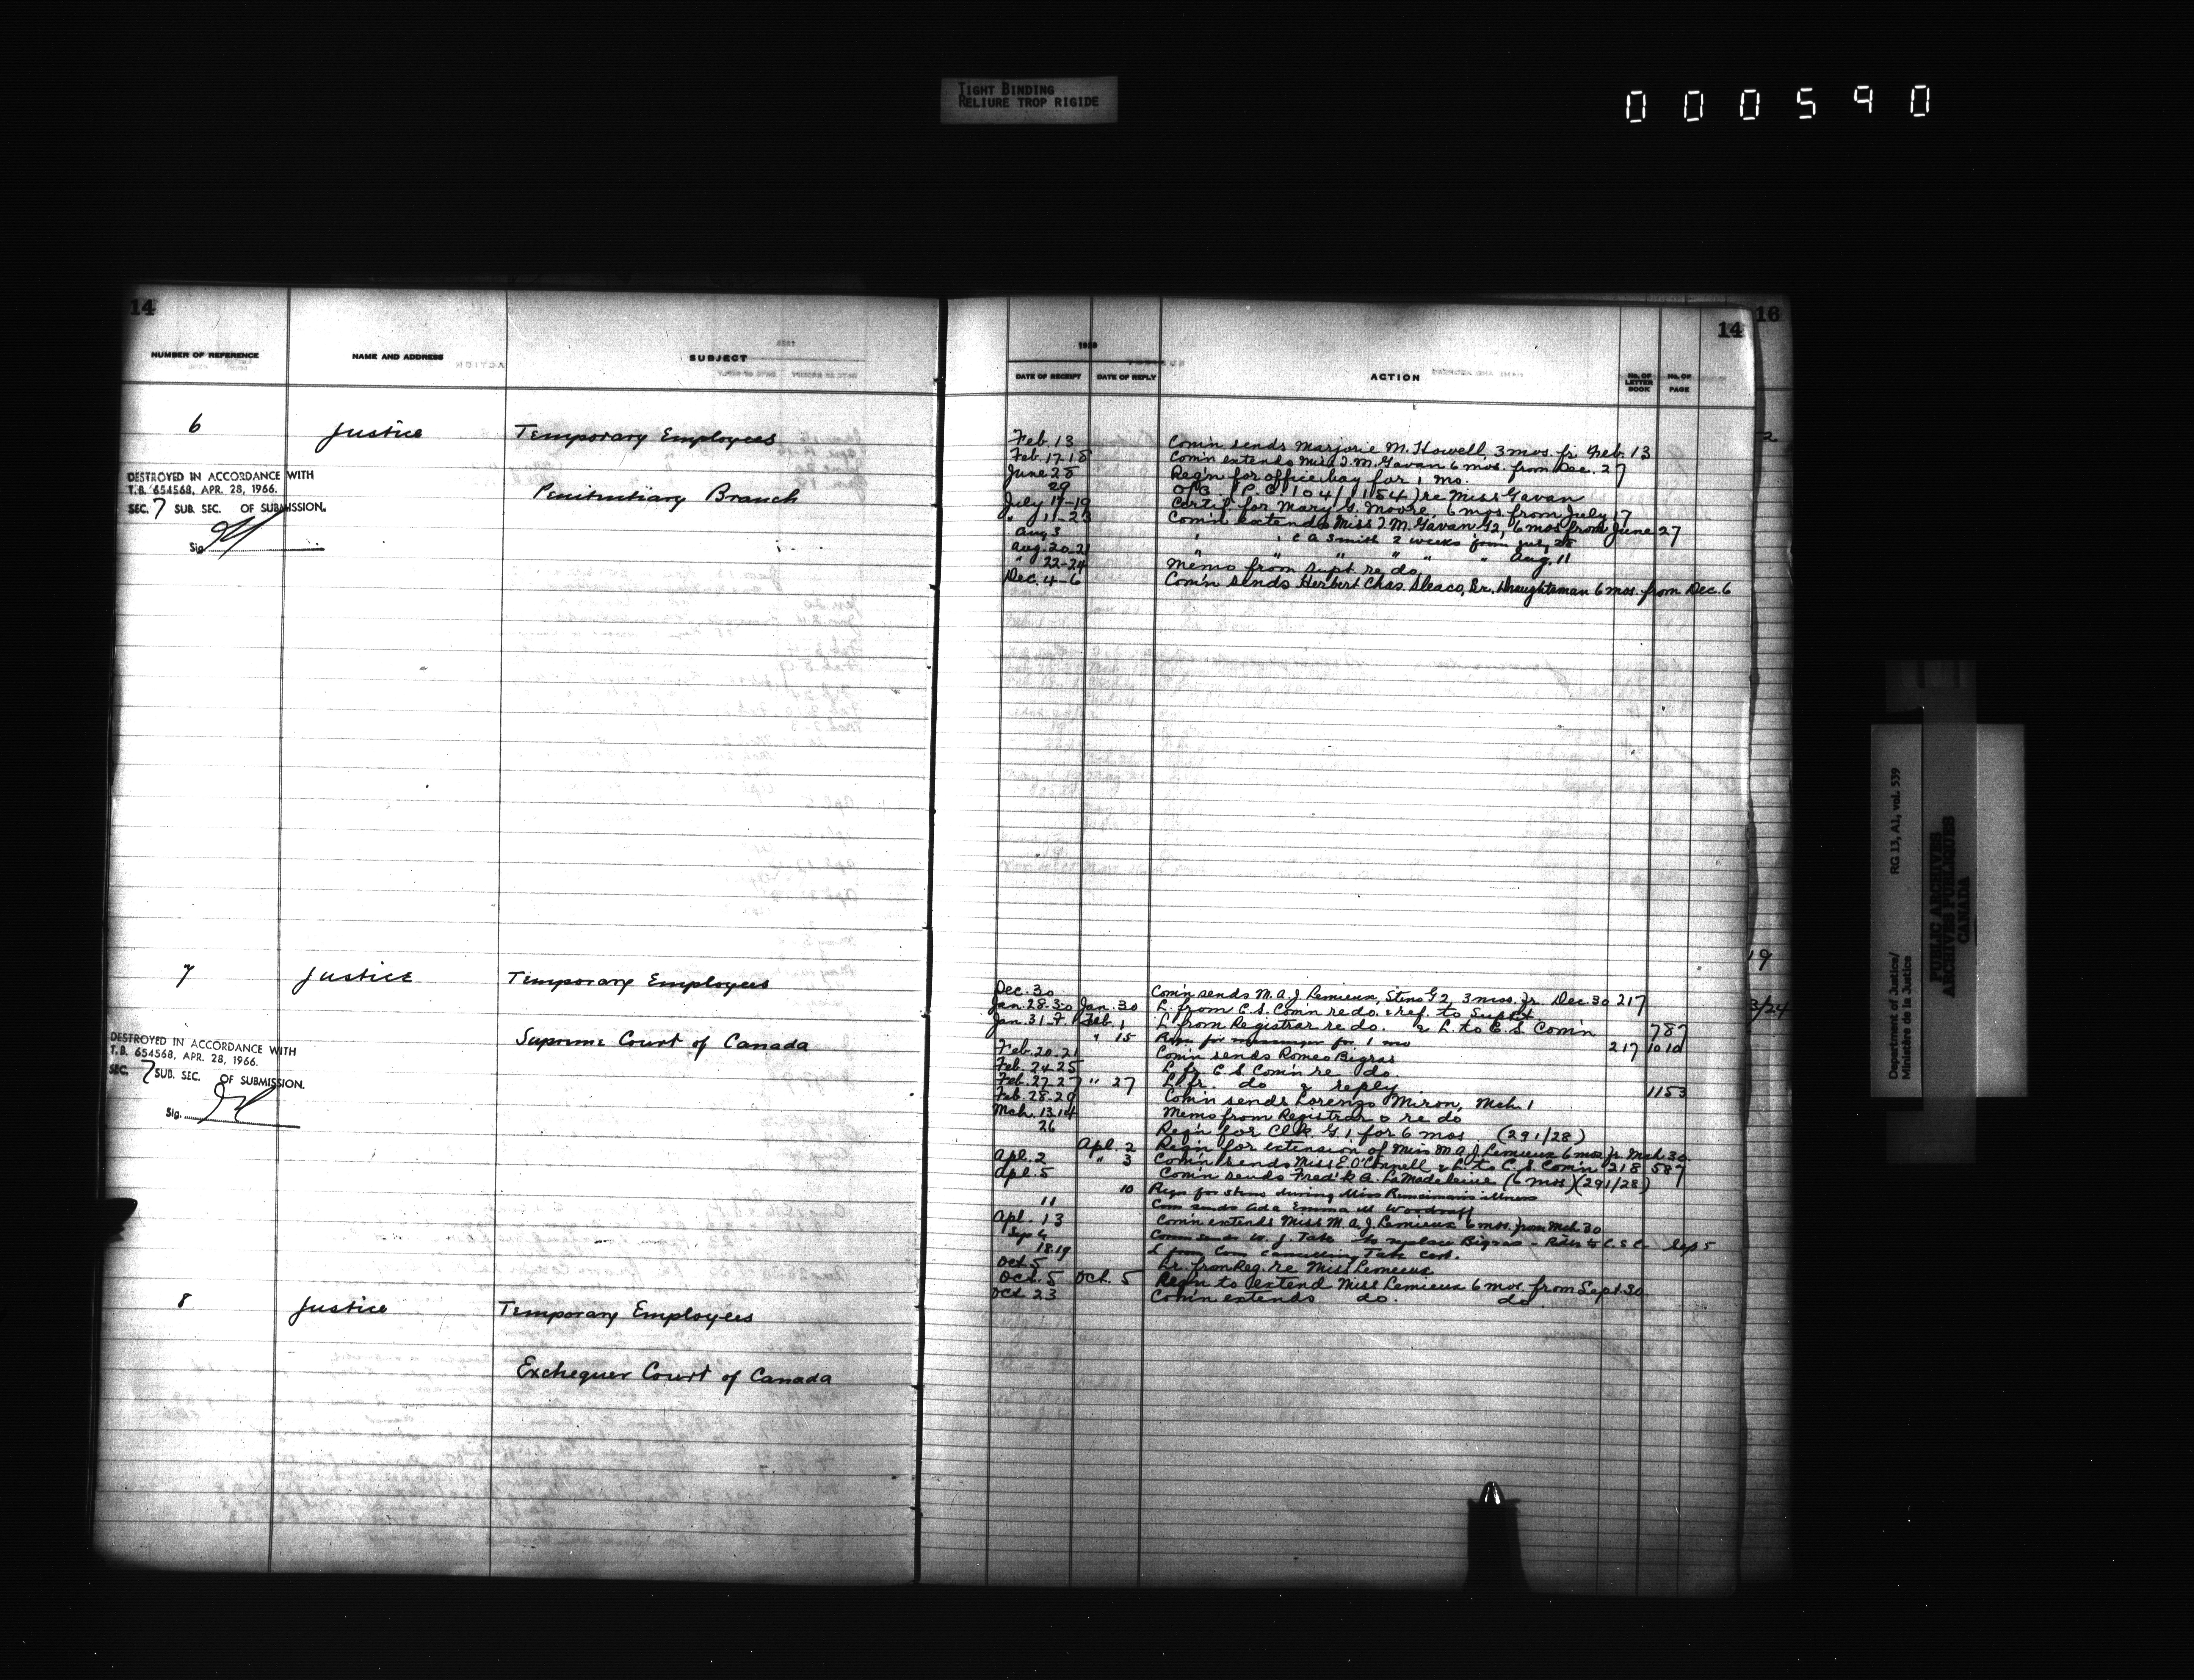 TIGHT BINDING
RELIURE TROP RIGIDE
000590
14
NUMBER OF REFERENCE NAME AND ADDRESS SUBJECT
6 Justice Temporary Employees
DESTROYED IN ACCORDANCE WITH
T.B. 654568, APR. 28, 1966.
SEC. 7 SUB. SEC. OF SUBMISSION.
Sig.
Penitentiary Branch
7 Justice Temporary Employees
DESTROYED IN ACCORDANCE WITH
T.B. 654568, APR. 28, 1966.
SEC. 7 SUB. SEC. OF SUBMISSION.
Sig.
Supreme Court of Canada
8 Justice Temporary Employees
Exchequer Court of Canada
14 16
DATE OF RECEIPT DATE OF REPLY ACTION No. OF LETTER BOOK No. OF PAGE
Feb. 13 Com'n sends Marjorie M. Howell, 3 mos. fr. Feb. 13
Feb. 17-18 Com'n extends Miss I. M. Gavan 6 mos. from Dec. 27
June 28 Reg'n for office boy for 1 mo.
29 O/C (P.C. 104/1154) re Miss Gavan
July 17-19 Certif. for Mary G. Moore, 6 mos. from July 17
" 11-23 Com'n extends Miss I. M. Gavan G2, 6 mos from June 27
Aug 3 " " C A Smith 2 weeks from July 28
Aug. 20-21 " " " " " " Aug. 11
" 22-24 Memo from Supt re do
Dec. 4-6 Com'n sends Herbert Chas. Sleaco, Sr. Draughtsman 6 mos. from Dec. 6
Dec. 30 Com'n sends M. A. J. Lemieux, Steno G2, 3 mos. fr. Dec. 30 217
Jan. 28-30 Jan. 30 L. from C. S. Com'n re do. & ref. to Sup Ct
Jan. 31-F. 1 Feb. 1 L. from Registrar re do. & L. to C. S. Com'n 787
" 15 Reqn for messenger for 1 mo 217 1010
Feb. 20-21 Com'n sends Romeo Bigras
Feb. 24-25 L. fr. C. S. Com'n re do.
Feb. 27-27 " 27 L. fr. do & reply 1153
Feb. 28-29 Com'n sends Lorenzo Miron, Mch. 1
Mch. 13-14 Memo from Registrar re do
26 Reg'n for Clk. G. 1 for 6 mos (291/28)
Apl. 2 Reg'n for extension of Miss M. A. J. Lemieux 6 mos. fr. Mch. 30.
Apl. 2 " 3 Com'n sends Miss E. O'Connell & L. to C. S. Com'n 218 587
Apl. 5 Com'n sends Fred'k A. LaMadeleine (6 mos) (291/28)
10 Reqn for steno during Miss Runciman's illness
11 Com sends Ada Emma M Woodruff
Apl. 13 Com'n extends Miss M. A. J. Lemieux 6 mos. from Mch. 30
Sep 4 Comm sends W. J. Tate to replace Bigras - C.S.C. Sep 5
18-19 L from Com cancelling Tate cert.
Oct. 5 Lr. from Reg. re Miss Lemieux
Oct. 5 Oct. 5 Reqn to extend Miss Lemieux 6 mos. from Sept 30
Oct 23 Com'n extends do. do
2
19
3/24
Department of Justice/
Ministère de la Justice
RG 13, A1, vol. 539
PUBLIC ARCHIVES
ARCHIVES PUBLIQUES
CANADA